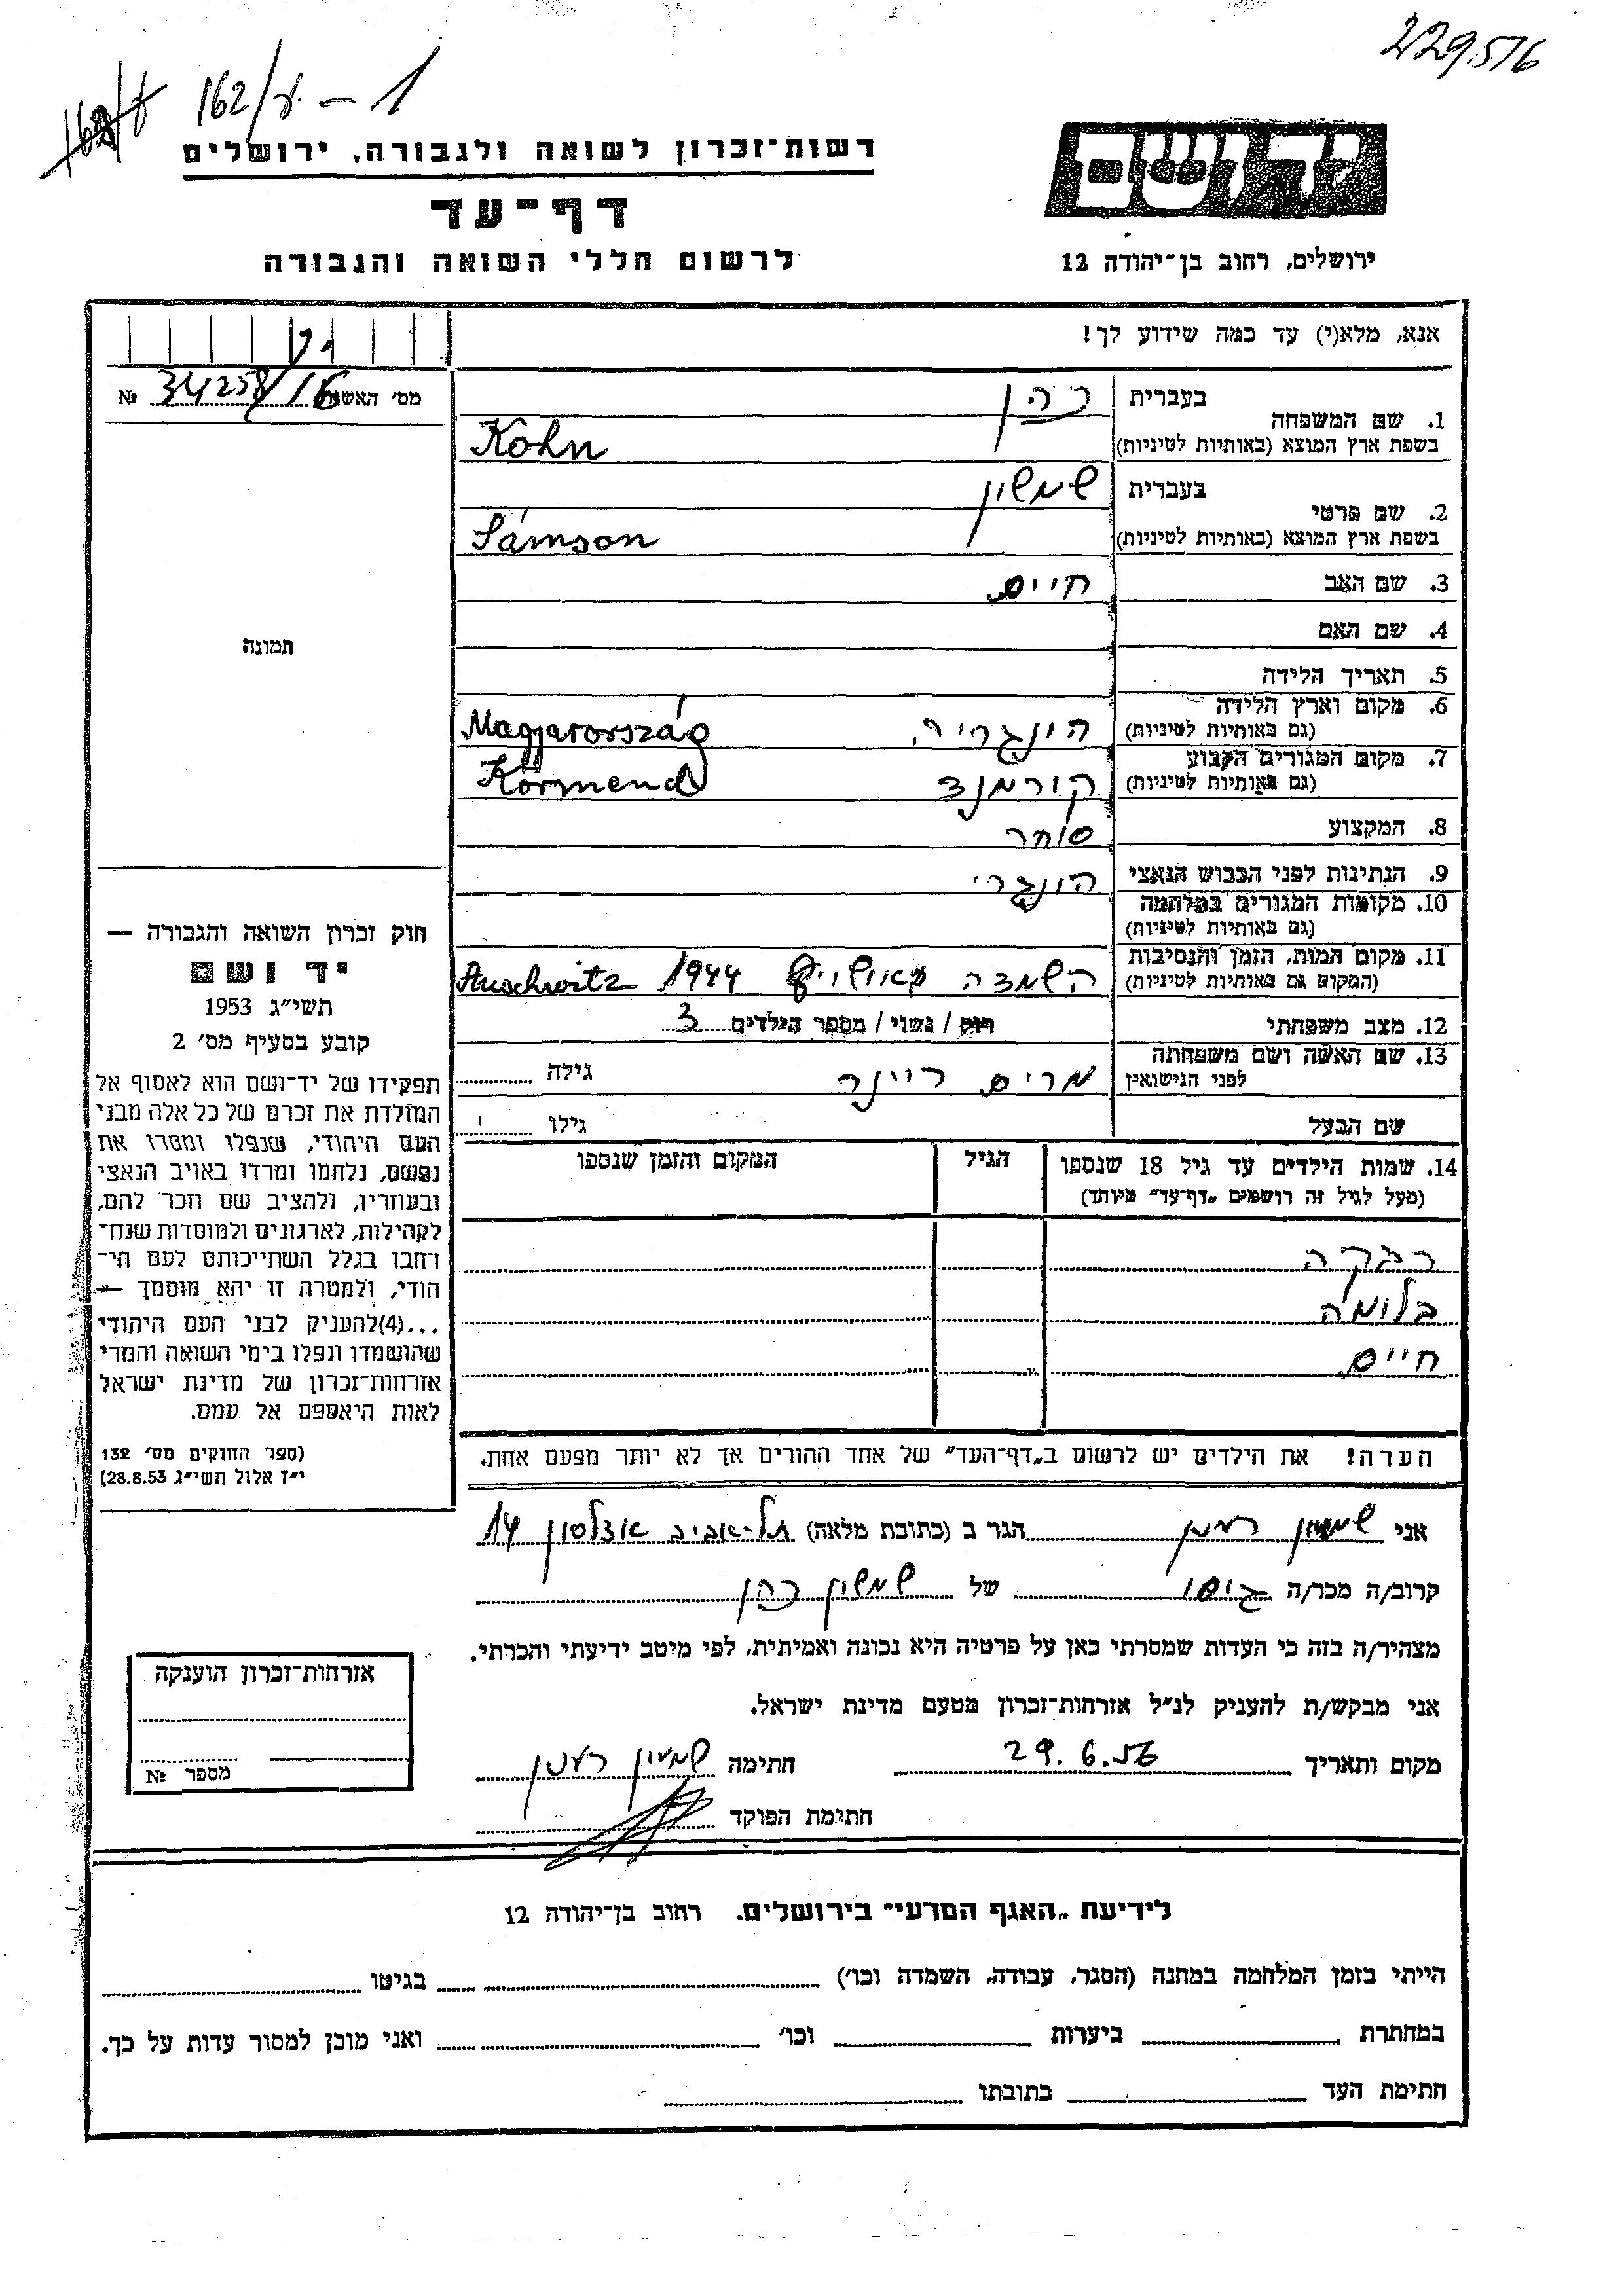 229516
162/ק - 1
יד ושם
רשות־זכרון לשואה ולגבורה, ירושלים
דף־עד
לרשום חללי השואה והגבורה
ירושלים, רחוב בן־יהודה 12
אנא, מלא(י) עד כמה שידוע לך!
מס׳ האשה № 34258/16
1. שם המשפחה
בעברית כהן
בשפת ארץ המוצא (באותיות לטיניות) Kohn
2. שם פרטי
בעברית שמשון
בשפת ארץ המוצא (באותיות לטיניות) Sámson
3. שם האב חיים
4. שם האם
5. תאריך הלידה
6. מקום וארץ הלידה
(גם באותיות לטיניות) הונגריה Magyarország
7. מקום המגורים הקבוע
(גם באותיות לטיניות) קורמנד Körmend
8. המקצוע סוחר
9. הנתינות לפני הכבוש הנאצי הונגרי
10. מקומות המגורים במלחמה
(גם באותיות לטיניות)
11. מקום המות, הזמן והנסיבות
(המקום גם באותיות לטיניות) השמדה אושויץ 1944 Auschwitz
12. מצב משפחתי רוק / נשוי / מספר הילדים 3
13. שם האשה ושם משפחתה
לפני הנישואין מרים ריינר גילה
שם הבעל גילו
14. שמות הילדים עד גיל 18 שנספו הגיל המקום והזמן שנספו
(מעל לגיל זה רושמים „דף־עד” מיוחד)
רבקה
בלומה
חיים
הערה! את הילדים יש לרשום ב„דף־העד” של אחד ההורים אך לא יותר מפעם אחת.
תמונה
חוק זכרון השואה והגבורה —
יד ושם
תשי״ג 1953
קובע בסעיף מס׳ 2
תפקידו של יד־ושם הוא לאסוף אל
המולדת את זכרם של כל אלה מבני
העם היהודי, שנפלו ומסרו את
נפשם, נלחמו ומרדו באויב הנאצי
ובעוזריו, ולהציב שם וזכר להם,
לקהילות, לארגונים ולמוסדות שנח־
רחבו בגלל השתייכותם לעם הי־
הודי, ולמטרה זו יהא מוסמך —
...(4)להעניק לבני העם היהודי
שהושמדו ונפלו בימי השואה והמרי
אזרחות־זכרון של מדינת ישראל
לאות היאספם אל עמם.
(ספר החוקים מס׳ 132
י״ז אלול תשי״ג 28.8.53)
אני שמעון רענן הגר ב (כתובת מלאה) תל-אביב 14
קרוב/ה מכר/ה גיסו של שמשון כהן
מצהיר/ה בזה כי העדות שמסרתי כאן על פרטיה היא נכונה ואמיתית, לפי מיטב ידיעתי והכרתי.
אני מבקש/ת להעניק לנ״ל אזרחות־זכרון מטעם מדינת ישראל.
מקום ותאריך 29.6.56 חתימה שמעון רענן
חתימת הפוקד
אזרחות־זכרון הוענקה
מספר №
לידיעת „האגף המדעי” בירושלים. רחוב בן־יהודה 12
הייתי בזמן המלחמה במחנה (הסגר, עבודה, השמדה וכו׳) בגיטו
במחתרת ביערות וכו׳ ואני מוכן למסור עדות על כך.
חתימת העד כתובתו